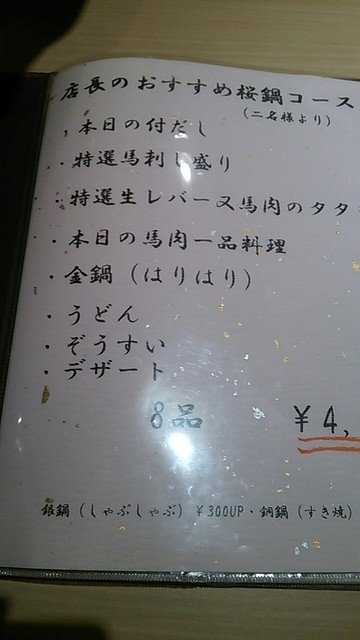 店長のおすすめ桜鍋コース
(二名様より)
・本日の付だし
・特選馬刺し盛り
・特選生レバー又馬肉のタタ
・本日の馬肉一品料理
・金鍋(はりはり)
・うどん
・ぞうすい
・デザート
8品 ¥4,
銀鍋(しゃぶしゃぶ)¥300UP・銅鍋(すき焼)